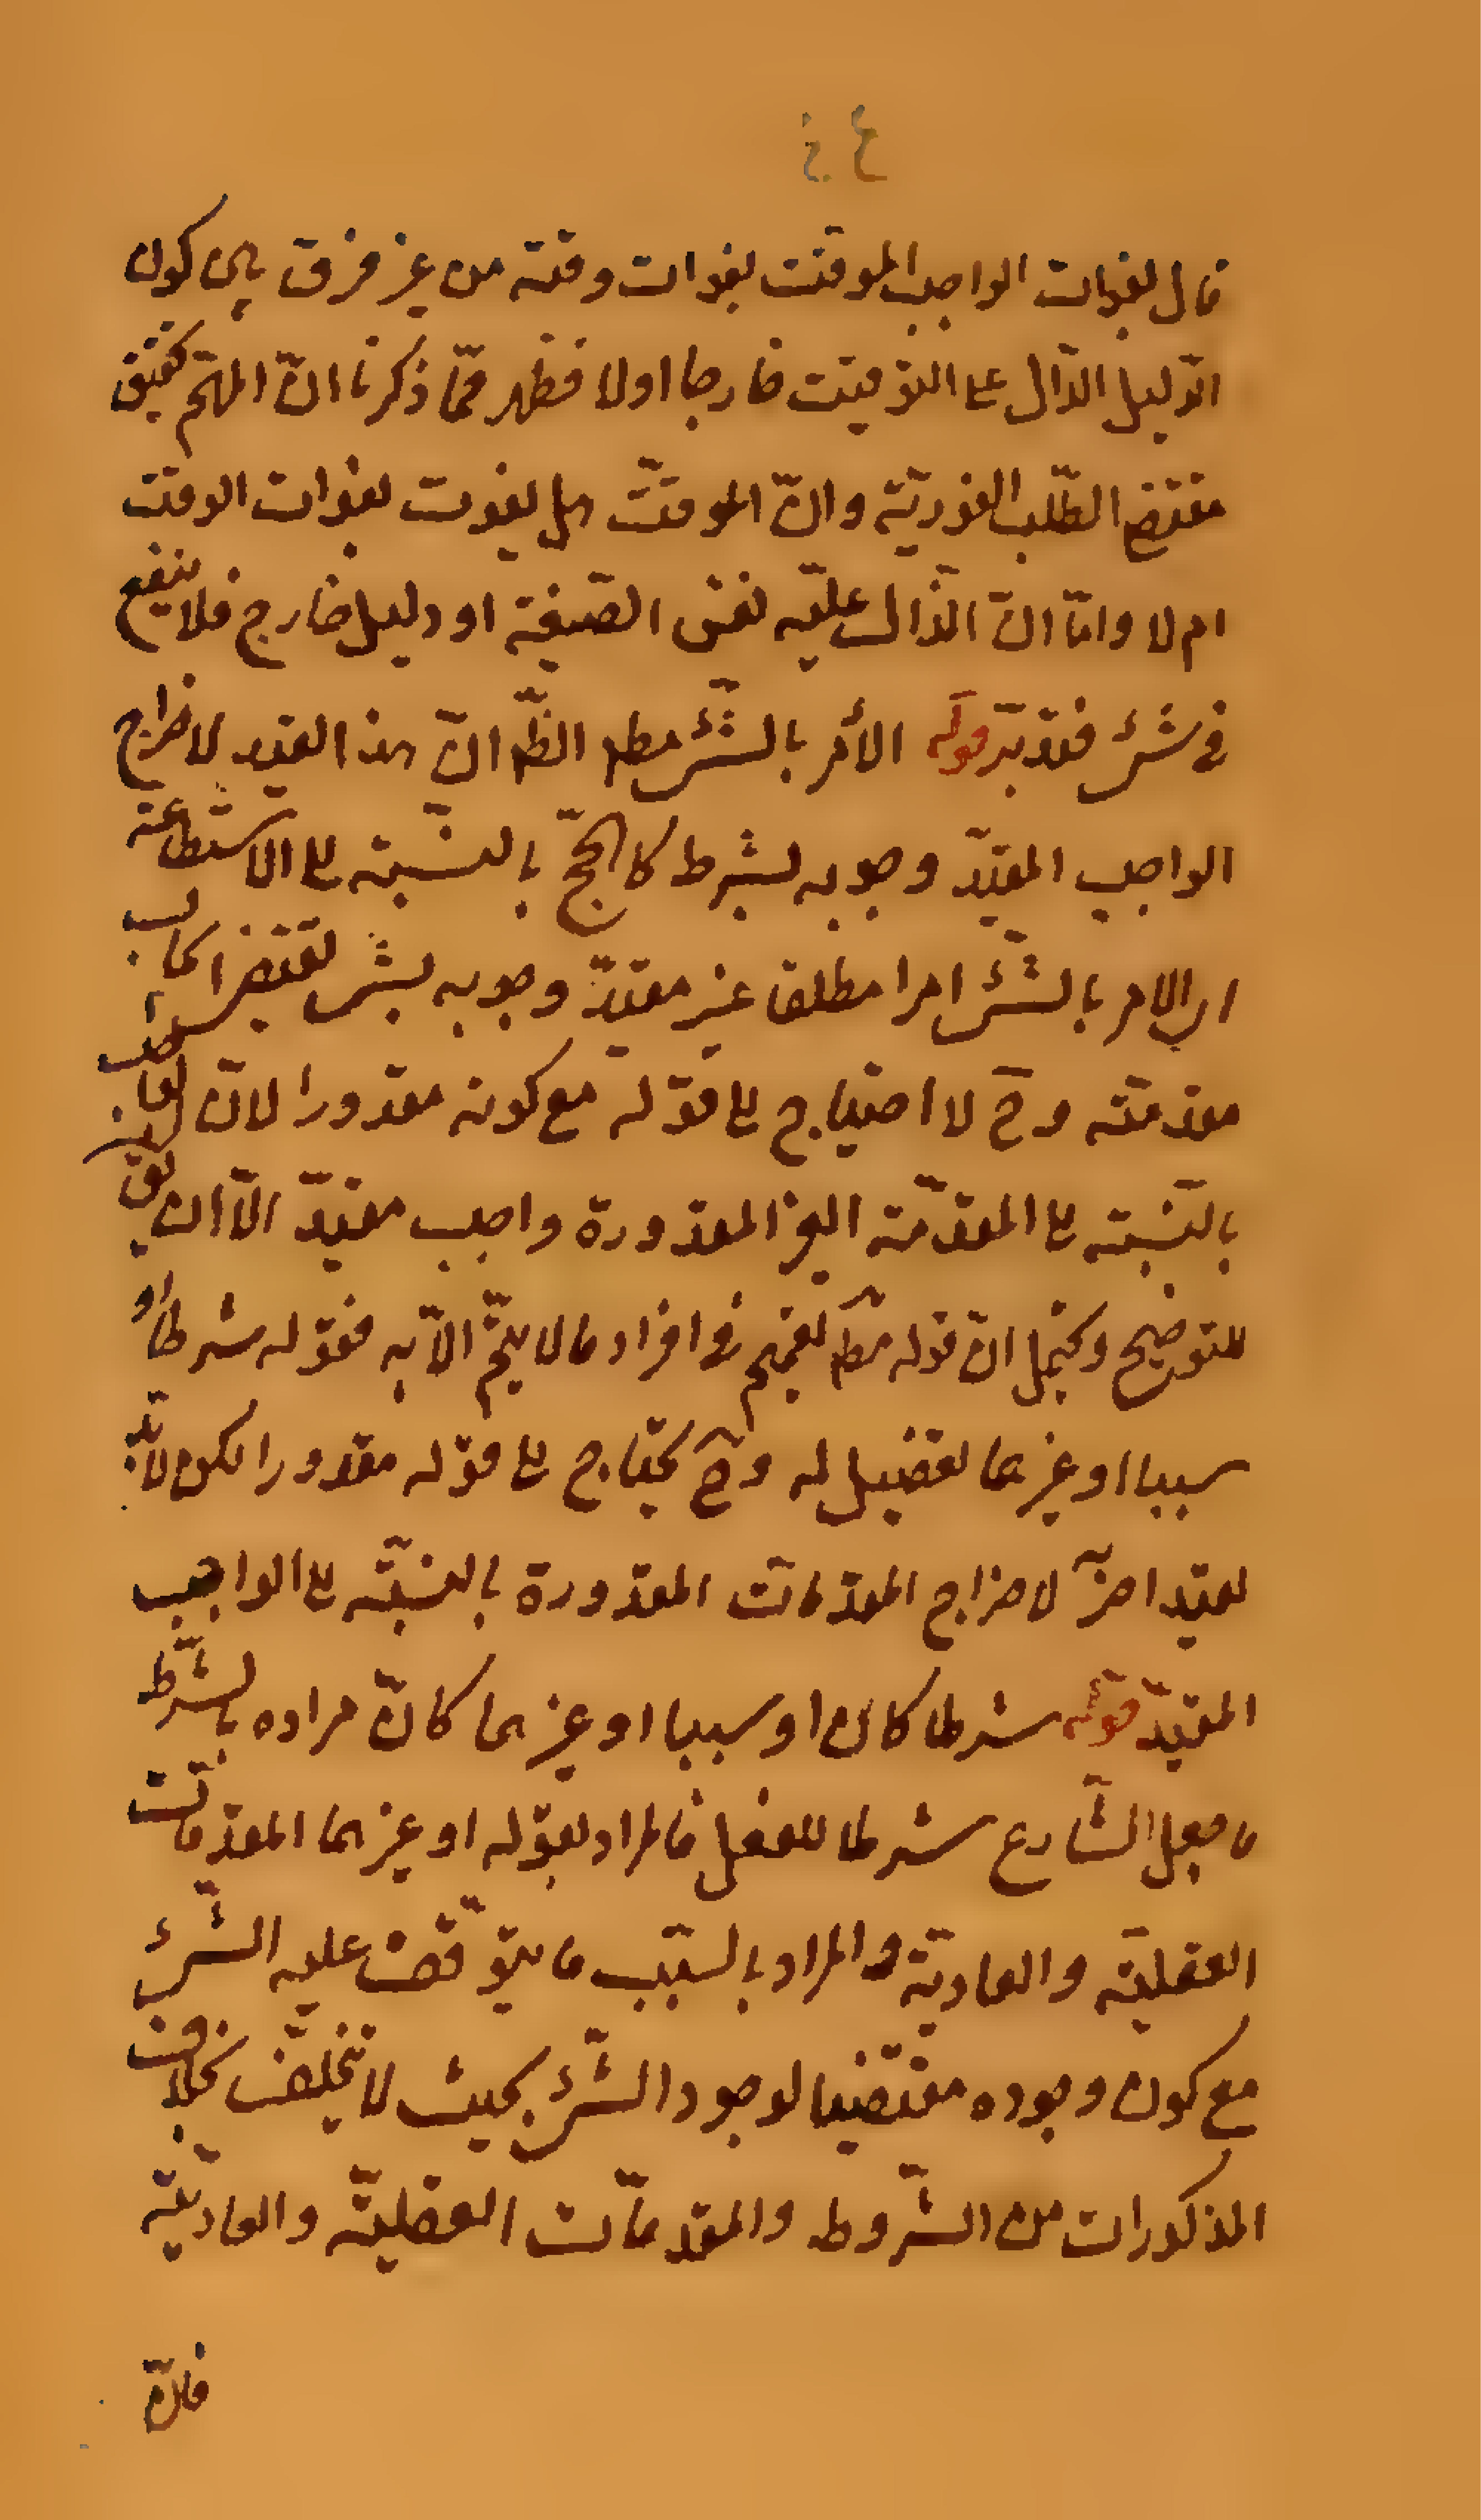 قال بفوات الواجب الموقت بفوات وقته من غير فرق بين كون
الدليل الدال على التوقيت خارجا اولا فظهر مما ذكرنا ان المهم تحقيق
مقتضى الطلب الفورية وان الموقت هل يفوت بفوات الوقت
ام لا واما ان الدال عليه نفس الصيغة او دليل خارج فلا ينفع
في شئ فتدبر قوله الأمر بالشئ مطم الظ ان هذا القيد لاخراج
الواجب المقيد وجوبه بشرط كالحج بالنسبة الى الاستطاعة
اى الامر بالشئ امرا مطلقا غير مقيد وجوبه بشئ يقتضى ايجاب
مقدمته وح لا احتياج الى قوله مع كونه مقدورا لان الواجب
بالنسبة الى المقدمة الغير المقدورة واجب مقيد الا ان يق
للتوضيح ويحتمل ان قوله مط تعميم فى افراد ما لا يتم الا به فقوله شرطا او
سببا او غيرهما تفصيل له وح يحتاج الى قوله مقدورا لكن لابد
لقيد اخر لاخراج المقدمات المقدورة بالنسبة الى الواجب
المقيد قوله شرطا كان او سببا او غيرهما كان مراده بالشرط
ما جعل الشارع شرطا للفعل فالمراد بقوله او غيرهما المقدمات
العقلية والعادية والمراد بالسبب ما يتوقف عليه الشئ
مع كون وجوده مقتضيا لوجود الشئ بحيث لا يتخلف بخلاف
المذكورات من الشروط والمقدمات العقلية والعادية
فان